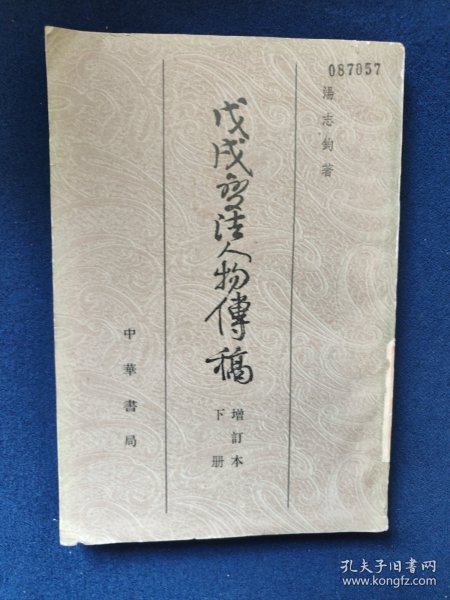 087057
湯志鈞著
戊戌变法人物傳稿
增訂本
下册
中華書局
孔夫子旧书网
www.kongfz.com